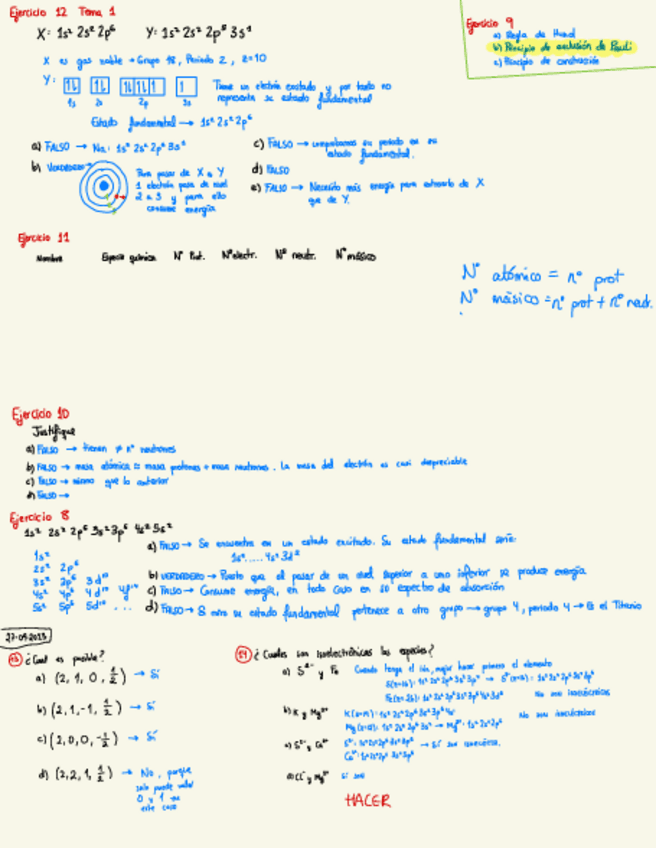 Ejercicio 12 Tema 1
X: 1s² 2s² 2p⁶ Y: 1s² 2s² 2p⁶ 3s¹
X es gas noble → Grupo 18, Periodo 2, z=10
Y:
1s 2s 2p 3s
Tiene un electrón excitado y por tanto no
representa su estado fundamental
Estado fundamental → 1s² 2s² 2p⁶
a) FALSO → Na: 1s² 2s² 2p⁶ 3s¹
b) VERDADERO →
Para pasar de X a Y
1 electrón pasa de nivel
2 a 3 y para ello
consume energía
c) FALSO → comprobamos su periodo en su
estado fundamental.
d) FALSO
e) FALSO → Necesito más energía para extraerlo de X
que de Y.
Ejercicio 9
a) Regla de Hund
b) Principio de exclusión de Pauli
c) Principio de construcción
Ejercicio 11
Nombre Especie química Nº Prot. Nº electr. Nº neutr. Nº másico
Nº atómico = nº prot
Nº másico = nº prot + nº neutr.
Ejercicio 10
Justifique
a) FALSO → tienen ≠ nº neutrones
b) FALSO → masa atómica = masa protones + masa neutrones. La masa del electrón es casi despreciable
c) FALSO → mismo que la anterior
d) FALSO →
Ejercicio 8
1s² 2s² 2p⁶ 3s² 3p⁶ 4s² 5s²
1s²
2s² 2p⁶
3s² 3p⁶ 3d¹⁰
4s² 4p⁶ 4d¹⁰ 4f¹⁴
5s² 5p⁶ 5d¹⁰ ...
a) FALSO → Se encuentra en un estado excitado. Su estado fundamental sería:
1s².....4s² 3d²
b) VERDADERO → Puesto que al pasar de un nivel superior a uno inferior se produce energía
c) FALSO → Consume energía, en todo caso en su espectro de absorción
d) FALSO → 8 en su estado fundamental pertenece a otro grupo → grupo 4, periodo 4 → Es el Titanio
27-09-2023
13 ¿Cual es posible?
a) (2, 1, 0, 1/2) → Sí
b) (2, 1, -1, 1/2) → Sí
c) (2, 0, 0, -1/2) → Sí
d) (2, 2, 1, 1/2) → No, porque
solo puede valer
0 y 1 en
este caso
14 ¿Cuales son isoelectrónicas las especies?
a) S²⁻ y Fe Cuando tenga el ión, mejor hacer primero el elemento
No son isoelectrónicas
b) K y Mg²⁺
No son isoelectrónicas
c) S²⁻ y Ca²⁺
→ Sí son
d) Cl⁻ y Mg²⁺ Sí son
HACER